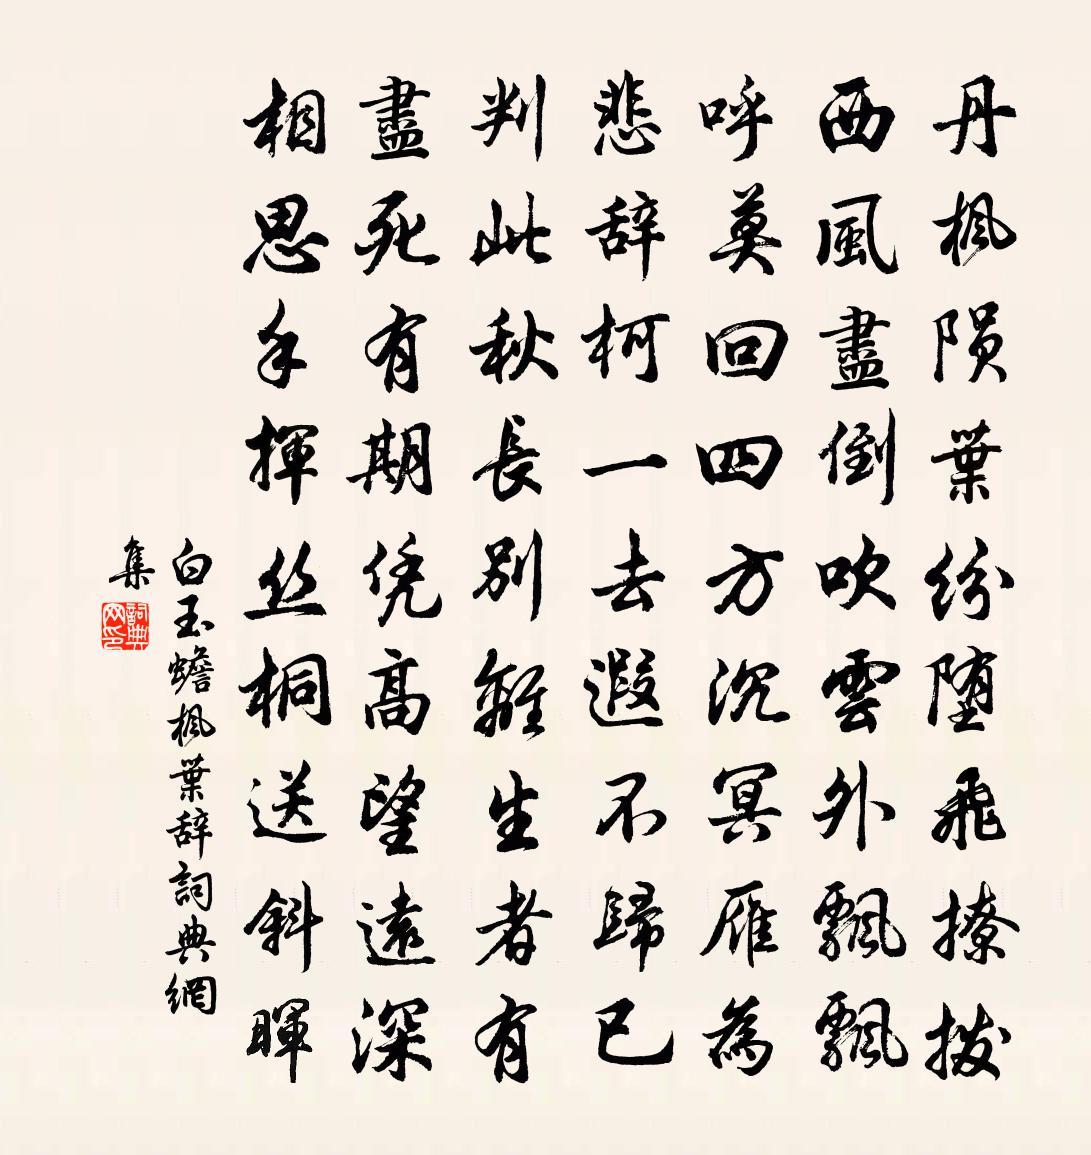 丹楓陨葉纷堕飛撩拨
西風盡倒吹雲外飄飄
呼莫回四方沉冥雁為
悲辞柯一去遐不歸已
判此秋長别離生者有
盡死有期凭高望遠深
相思手揮丝桐送斜暉
白玉蟾楓葉辞詞典網
集
詞典网印